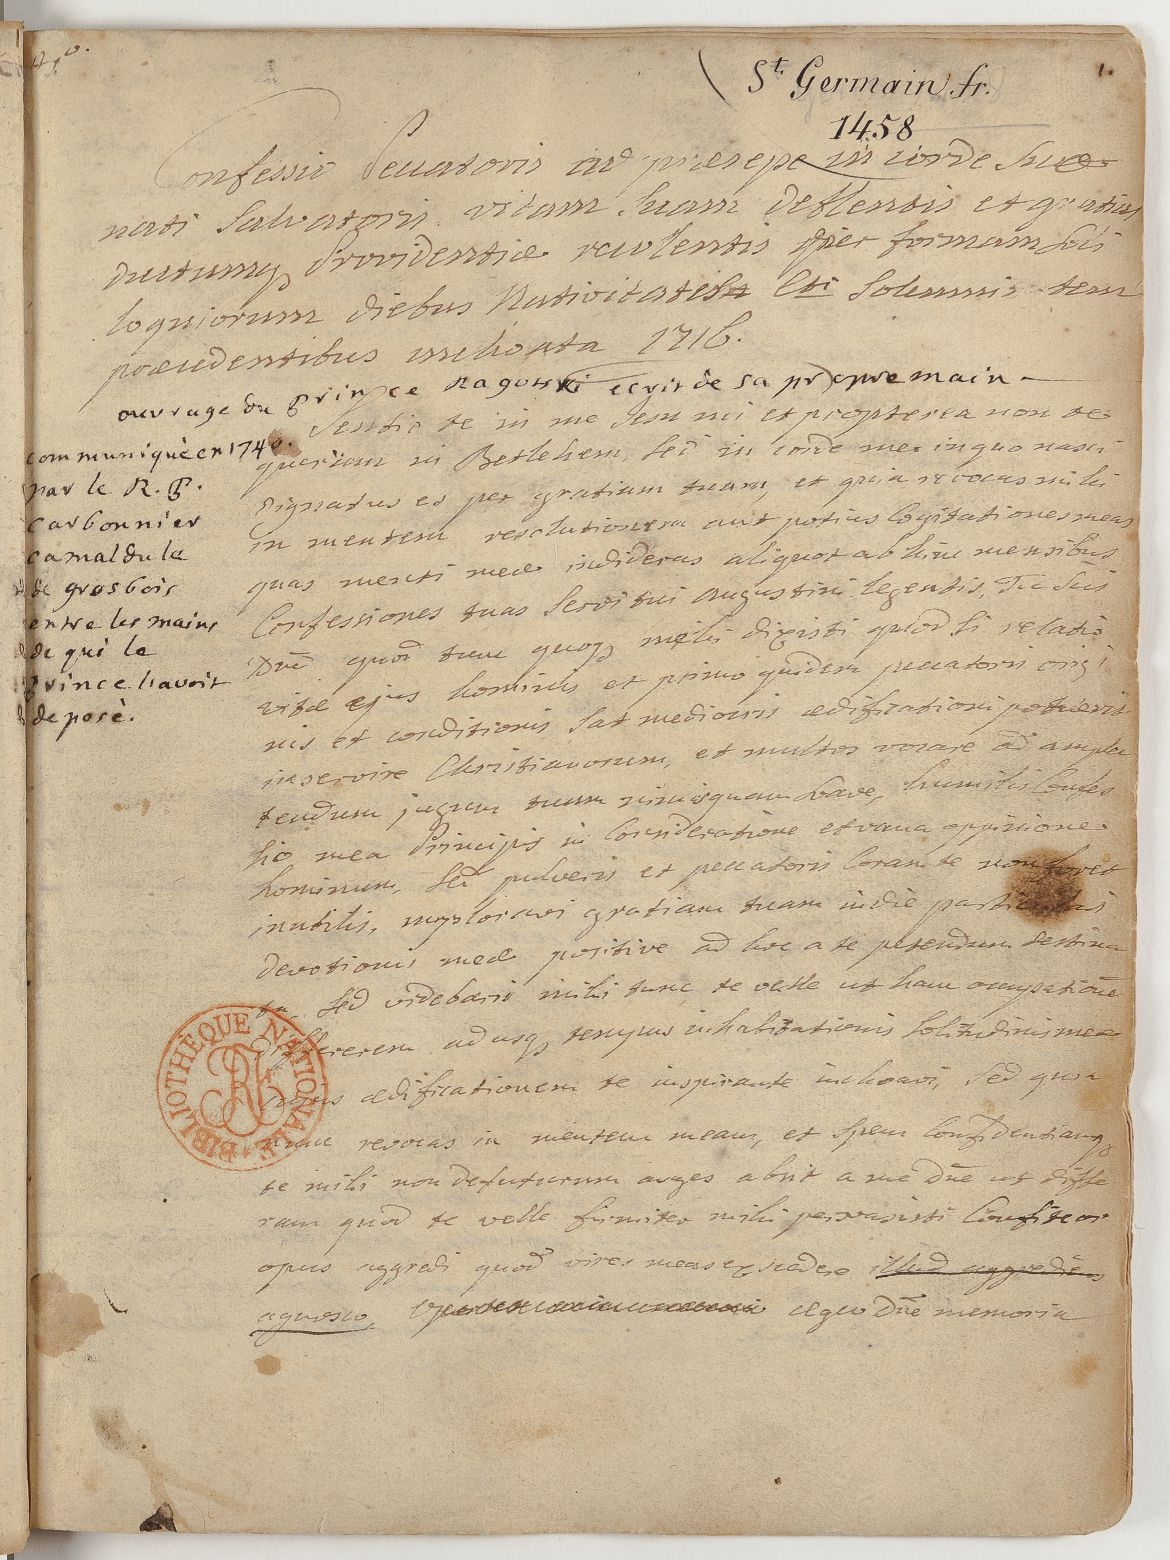 4°.
1.
St Germain. fr.
1458
Confessio Peccatoris ad præsepe in corde suo
nati Salvatoris vitam suam deflentis et gratias
ductumq Providentiæ recolentis per formam Soli
loquiorum diebus Nativitatis Cti Solemnit tem
præcedentibus inchoata 1716.
ouvrage du Prince Ragotski ecrit de sa propre main
communiquè en 1740.
par le R. P.
Carbonnier
camaldule
de grosbois
entre les mains
de qui le
prince l'avoit
deposè.
Sentio te in me Jesu mi et propterea non te
quæram in Betlehem, sed in corde meo in quo nasci
dignatus es per gratiam tuam, et quia revocas mihi
in mentem resolutionem aut potius Cogitationes meas
quas menti meæ indideras aliquot ab hinc mensibus
Confessiones tuas Servi tui Augustini legentis, Tu Scis
Dne quod tunc quoq mihi dixisti quod si relatio
vitæ ejus hominis et primo quidem peccatoris origi
nis et conditionis sat mediocris ædificationi potuerit
inservire Christianorum, et multos vocare ad ample
tendum jugum tuum nimisquam suave, humilis Confes
sio mea Principis in Consideratione et vana oppinione
hominum, sed pulveris et peccatoris Coram te non foret
inutilis, imploravi gratiam tuam indie
devotionis meæ positive ad hoc a te petendum destina
ta, sed videbaris mihi tunc te velle ut hanc occupationem
differrem adusq tempus inhabitationis Solitudinis meæ
cujus ædificationem te inspirante inchoavi, Sed quia
nunc revocas in mentem meam, et spem Confidentiamq
te mihi non defuturum auges absit a me Dne ut diffe
ram quod te velle firmiter mihi persuasisti Confiteor
opus aggredi quod vires meas excedere illud aggrediens
agnosco, egeo Dne memoria
BIBLIOTHÈQUE NATIONALE